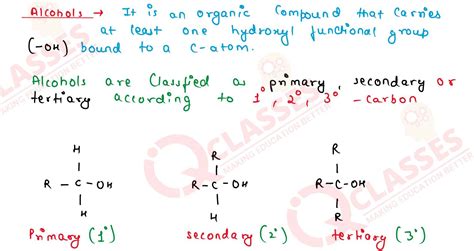 Alcohols → It is an organic compound that carries
at least one hydroxyl functional group
(-OH) bound to a C-atom.
Alcohols are classified as primary, secondary or
tertiary according to 1°, 2°, 3° - carbon
H R R
R - C - OH R - C - OH R - C - OH
H H R
Primary (1°) secondary (2°) tertiary (3°)
IQ CLASSES
MAKING EDUCATION BETTER
IQ CLASSES
MAKING EDUCATION BETTER
IQ CLASSES
MAKING EDUCATION BETTER